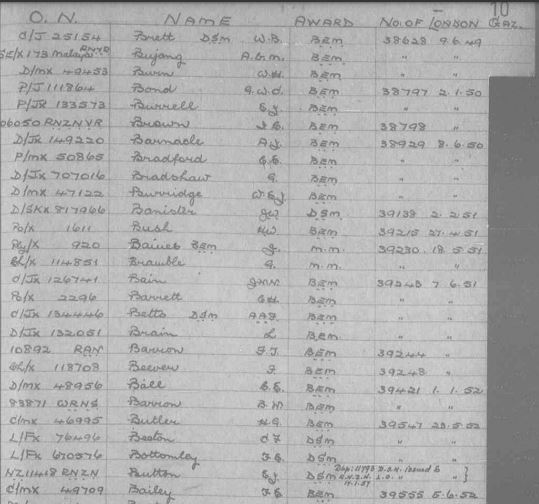 10
O. N. NAME AWARD No. OF LONDON GAZ.
C/J 25154 Brett DSM W.B. BEM 38628 9.6.49
SE/X 173 Malaya RNVR Bujang A.G.M. BEM " "
D/MX 49453 Burn W.H. BEM " "
P/J 111864 Bond G.W.C. BEM 38797 2.1.50
P/JX 133573 Burrell E.J. BEM " "
06050 RNZNVR Brown BEM 38798 "
D/JX 149220 Barnacle A.J. BEM 38929 8.6.50
P/MX 50865 Bradford BEM " "
D/JX 707016 Bradshaw G. BEM " "
D/MX 47122 Burridge W.E.J. BEM " "
D/SKX 817966 Banister J.W. DSM 39138 2.2.51
Po/X 1611 Bush H.W. BEM 39215 27.4.51
Ply/X 920 Baines BEM J. M.M. 39230 18.5.51
Ch/X 114851 Bramble G. M.M. " "
C/JX 126741 Bain J.M.M. BEM 39243 7.6.51
Po/X 2296 Barrett BEM " "
C/JX 134446 Betts DSM BEM " "
D/JX 132051 Brain L. BEM " "
10892 RAN Barron BEM 39244 "
Ch/X 118708 Beever BEM 39243 "
D/MX 48956 Ball BEM 39421 1.1.52
83871 WRNS Barron B.M. BEM " "
C/MX 46995 Butler H.G. BEM 39547 23.5.52
L/FX 76496 Beeton DSM " "
L/FX 670576 Bottomley DSM " "
NZ11418 RNZN Button E.J. DSM issued "
C/MX 49709 Bailey BEM 39555 5.6.52